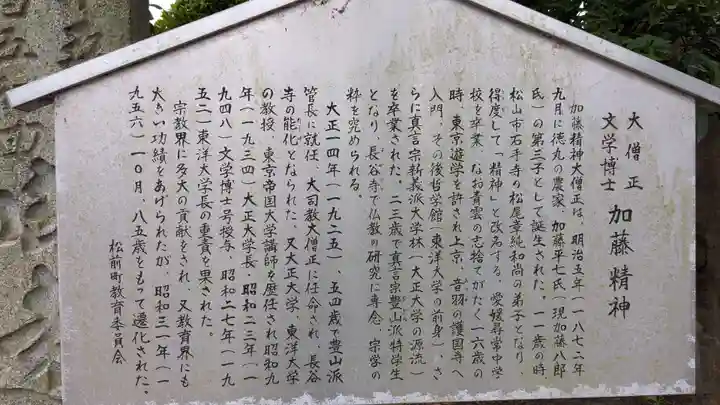 大僧正
文学博士 加藤精神
加藤精神大僧正は、明治五年(一八七二年
九月に徳丸の農家、加藤平七氏(現加藤八郎
氏)の第三子として誕生された。一一歳の時
松山市石手寺の松尾章純和尚の弟子となり、
得度して「精神」と改名する。愛媛尋常中学
校を卒業、なお青雲の志捨てがたく一六歳の
時、東京遊学を許され上京、音羽の護国寺へ
入門、その後哲学館(東洋大学の前身)、さ
らに真言宗新義派大学林(大正大学の源流)
を卒業された。二三歳で真言宗豊山派特学生
となり、長谷寺で仏教の研究に専念、宗学の
粋を究められる。
大正一四年(一九二五)、五四歳で豊山派
管長に就任、大司教大僧正に任命され、長谷
寺の能化となられた。又大正大学、東洋大学
の教授、東京帝国大学講師を歴任され昭和九
年(一九三四)大正大学長、昭和二三年(一
九四八)文学博士号授与、昭和二七年(一九
五二)東洋大学長の重責を果された。
宗教界に多大の貢献をされ、又教育界にも
大きい功績をあげられたが、昭和三一年(一
九五六)一〇月、八五歳をもって遷化された。
松前町教育委員会